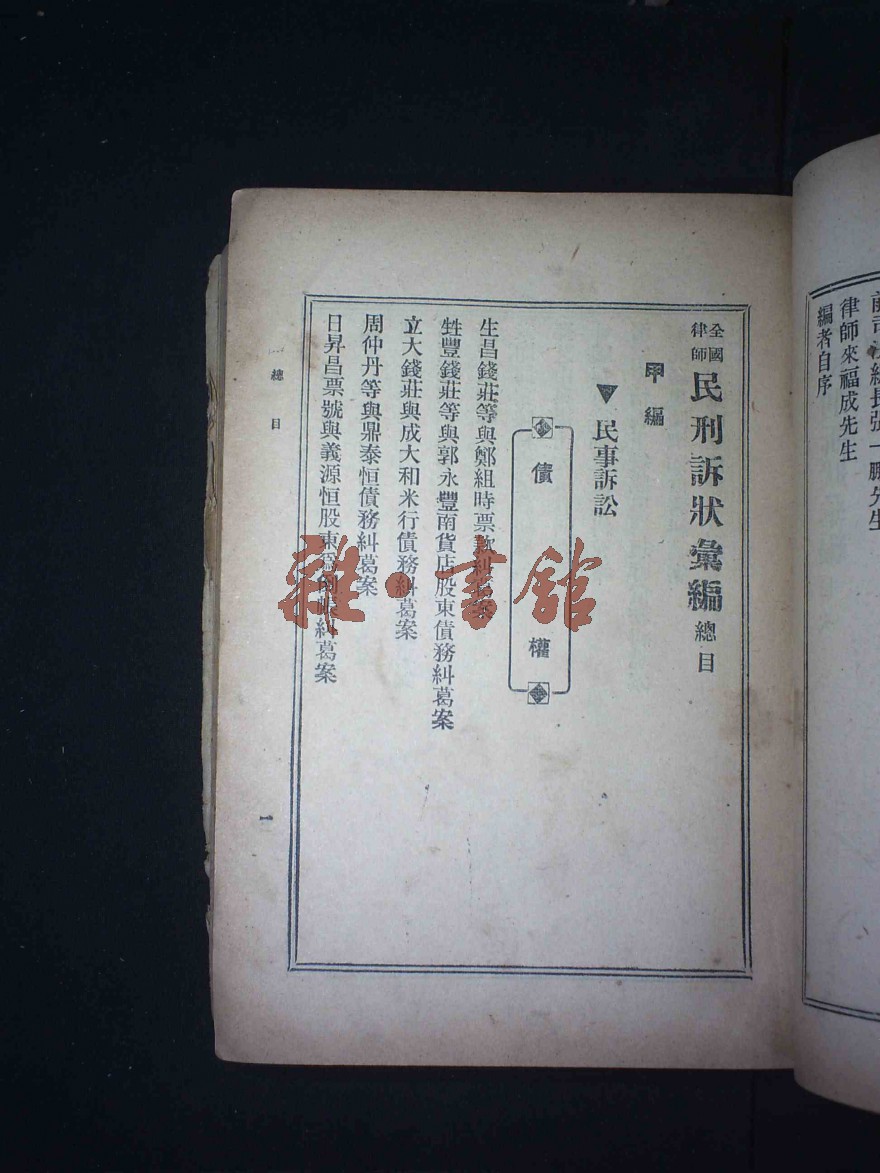 全國律師民刑訴狀彙編總目
甲編
▼民事訴訟
債權
生昌錢莊等與鄭組時票款糾葛案
甡豐錢莊等與郭永豐南貨店股東債務糾葛案
立大錢莊與成大和米行債務糾葛案
周仲丹等與鼎泰恒債務糾葛案
日昇昌票號與義源恒股東爲倒帳糾葛案
總目
一
律師來福成先生
編者自序
雜·書館